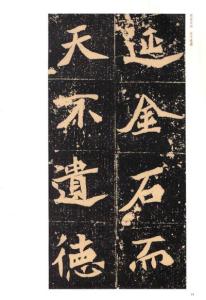 迹金石而
天不遺德